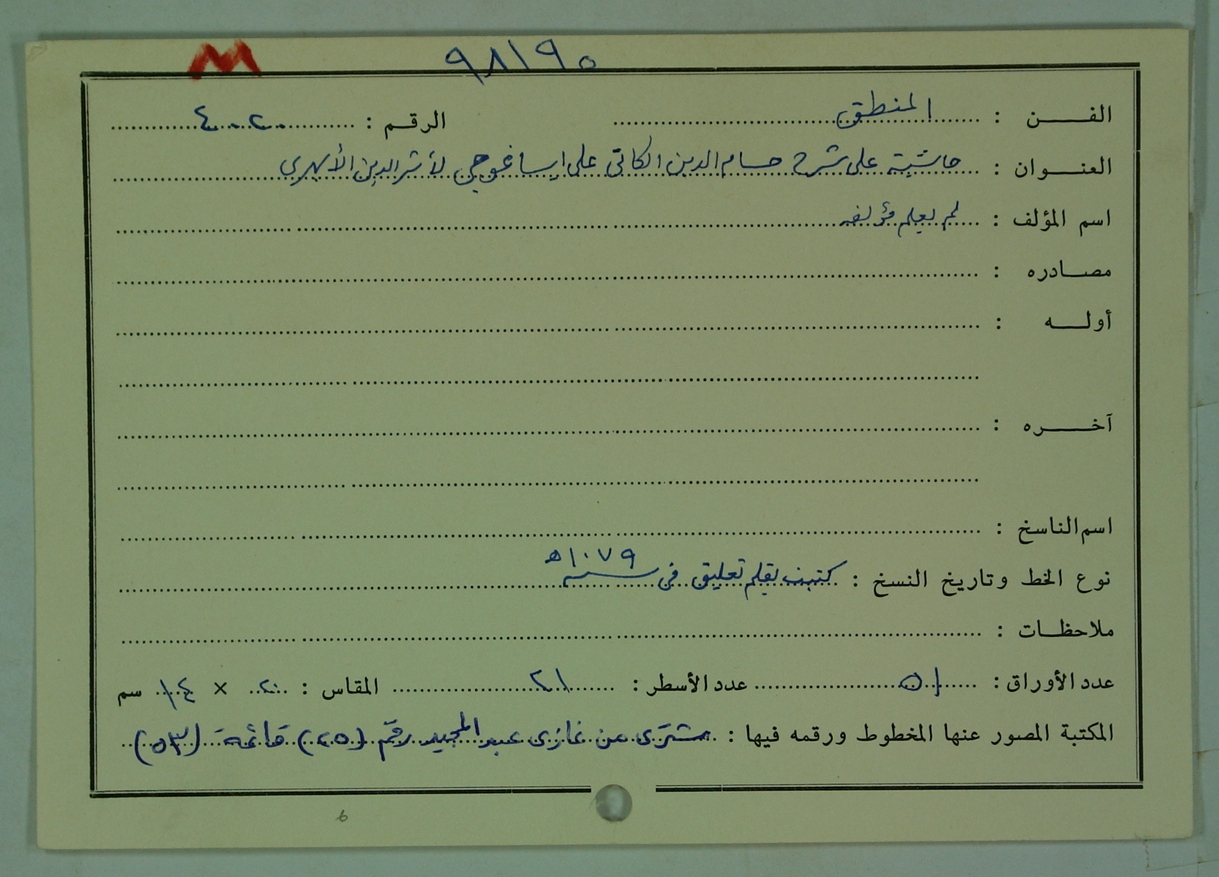 ٩٨١٩٥
الفـــن : المنطق الرقم : ٤٠٠٢
العنـــوان : حاشية على شرح حسام الدين الكاتى على ايساغوجى لأثير الدين الأبهري
اسم المؤلف : لم يعلم مؤلفه
مصـــادره :
أولـــه :
آخـــره :
اسم الناسخ :
نوع الخط وتاريخ النسخ : كتبت بقلم تعليق فى سنة ١٠٧٩ ه
ملاحظـات :
عدد الأوراق : ٥١ عدد الأسطر : ٢١ المقاس : ٢٠ × ١٤ سم
المكتبة المصور عنها المخطوط ورقمه فيها : مشترى من غازى عبد المجيد رقم (٢٥) قائمة (٥٣)